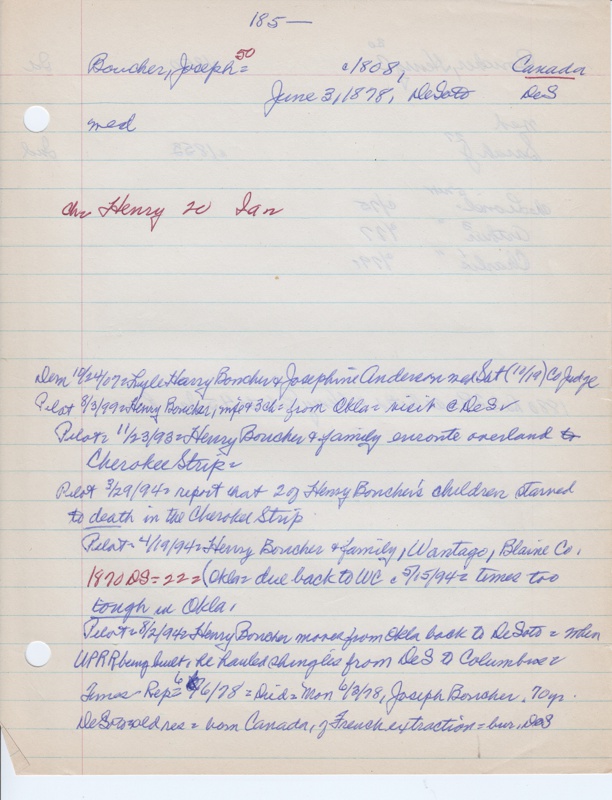 185—
Boucher, Joseph = 50 c1808, Canada
June 3, 1878, DeSoto DeS
med
chr Henry 20 Ian
Dem 10/24/07 = Lyle Harry Boucher & Josephine Anderson med Sat (10/19) Co Judge
Pilot 8/3/99 = Henry Boucher, wife & 3 ch = from Okla = visit c DeS
Pilot = 11/23/93 = Henry Boucher & family enroute overland to
Cherokee Strip =
Pilot 3/29/94 = report that 2 of Henry Boucher's children starved
to death in the Cherokee Strip
Pilot = 4/19/94 = Henry Boucher & family, Wantago, Blaine Co,
1870 DS = 22 = (Okla = due back to WC c 5/15/94 = times too
tough in Okla,
Pilot = 8/2/94 = Henry Boucher moves from Okla back to DeSoto = when
UPRR being built, he hauled shingles from DeS to Columbus =
Times - Rep = 6/6/78 = Died = Mon 6/3/78, Joseph Boucher, 70 yr.
DeSoto old res = born Canada, of French extraction = bur. DeS